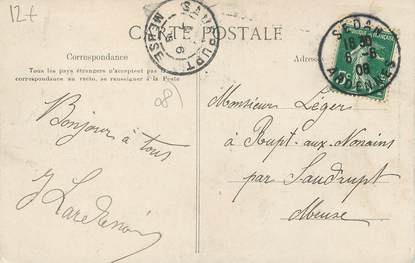 12+
CARTE POSTALE
Correspondance
Tous les pays étrangers n'acceptent pas la
correspondance au recto, se renseigner à la Poste
SAUDRUPT
MEUSE
Adresse
SEDAN
8-8
08
ARDENNES
Bonjour à tous
Monsieur Léger
à Rupt-aux-Nonains
par Saudrupt
Meuse